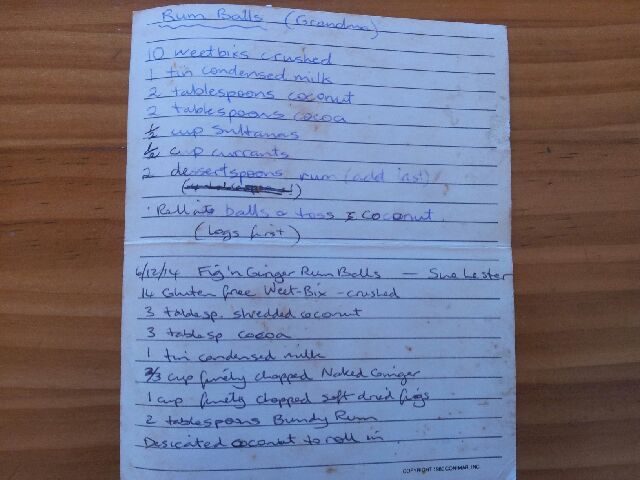 Rum Balls (Grandma)
10 weetbix crushed
1 tin condensed milk
2 tablespoons coconut
2 tablespoons cocoa
1/2 cup sultanas
1/2 cup currants
2 dessertspoons rum (add last)
Roll into balls & toss in coconut.
(logs first)
6/12/14 Fig'n Ginger Rum Balls — Sue Lester
14 Gluten free Weet-Bix - crushed
3 tablesp. shredded coconut
3 tablesp cocoa
1 tin condensed milk
2/3 cup finely chopped Naked Ginger
1 cup finely chopped soft dried figs
2 tablespoons Bundy Rum
Desicated coconut to roll in.
COPYRIGHT 1980 CONIMAR, INC.